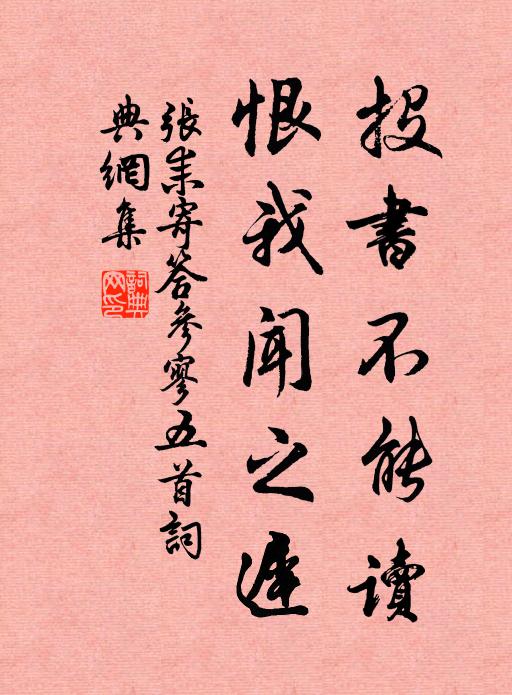 投書不能讀
恨我聞之遲
張耒寄答參寥五首詞
典網集
詞典
网印